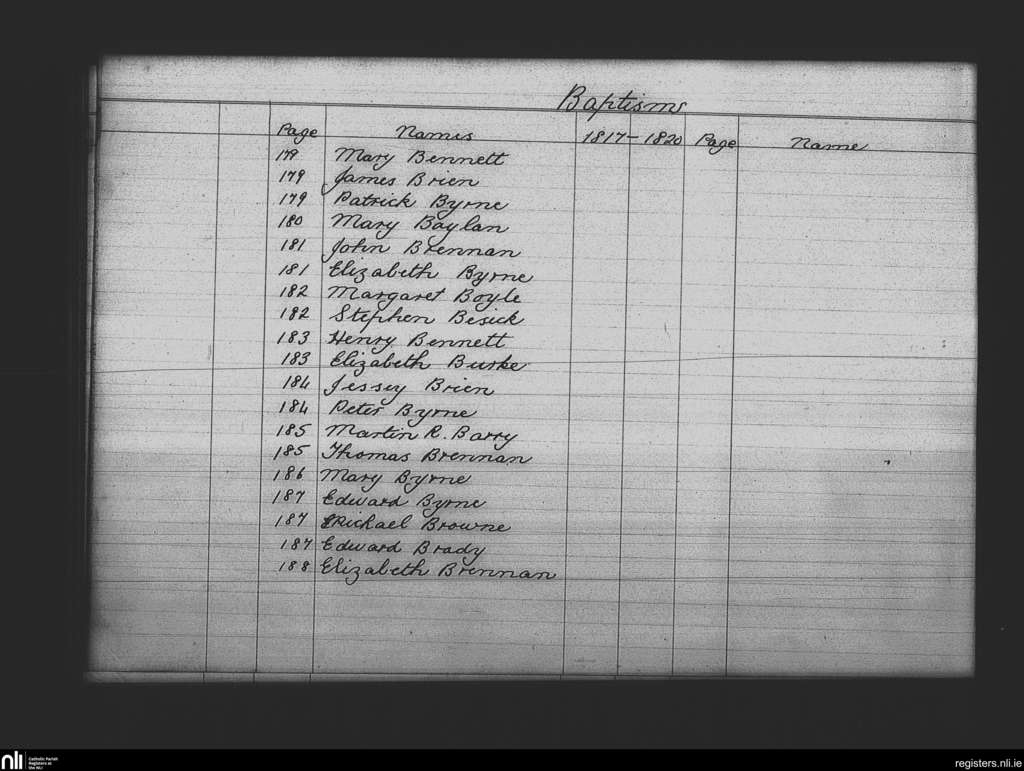 Baptisms
Page Names 1817 - 1820 Page Name
179 Mary Bennett
179 James Brien
179 Patrick Byrne
180 Mary Boylan
181 John Brennan
181 Elizabeth Byrne
182 Margaret Boyle
182 Stephen Besick
183 Henry Bennett
183 Elizabeth Burke
184 Jessey Brien
184 Peter Byrne
185 Martin R. Barry
185 Thomas Brennan
186 Mary Byrne
187 Edward Byrne
187 Michael Browne
187 Edward Brady
188 Elizabeth Brennan
nli Catholic Parish
Registers at
the NLI
registers.nli.ie